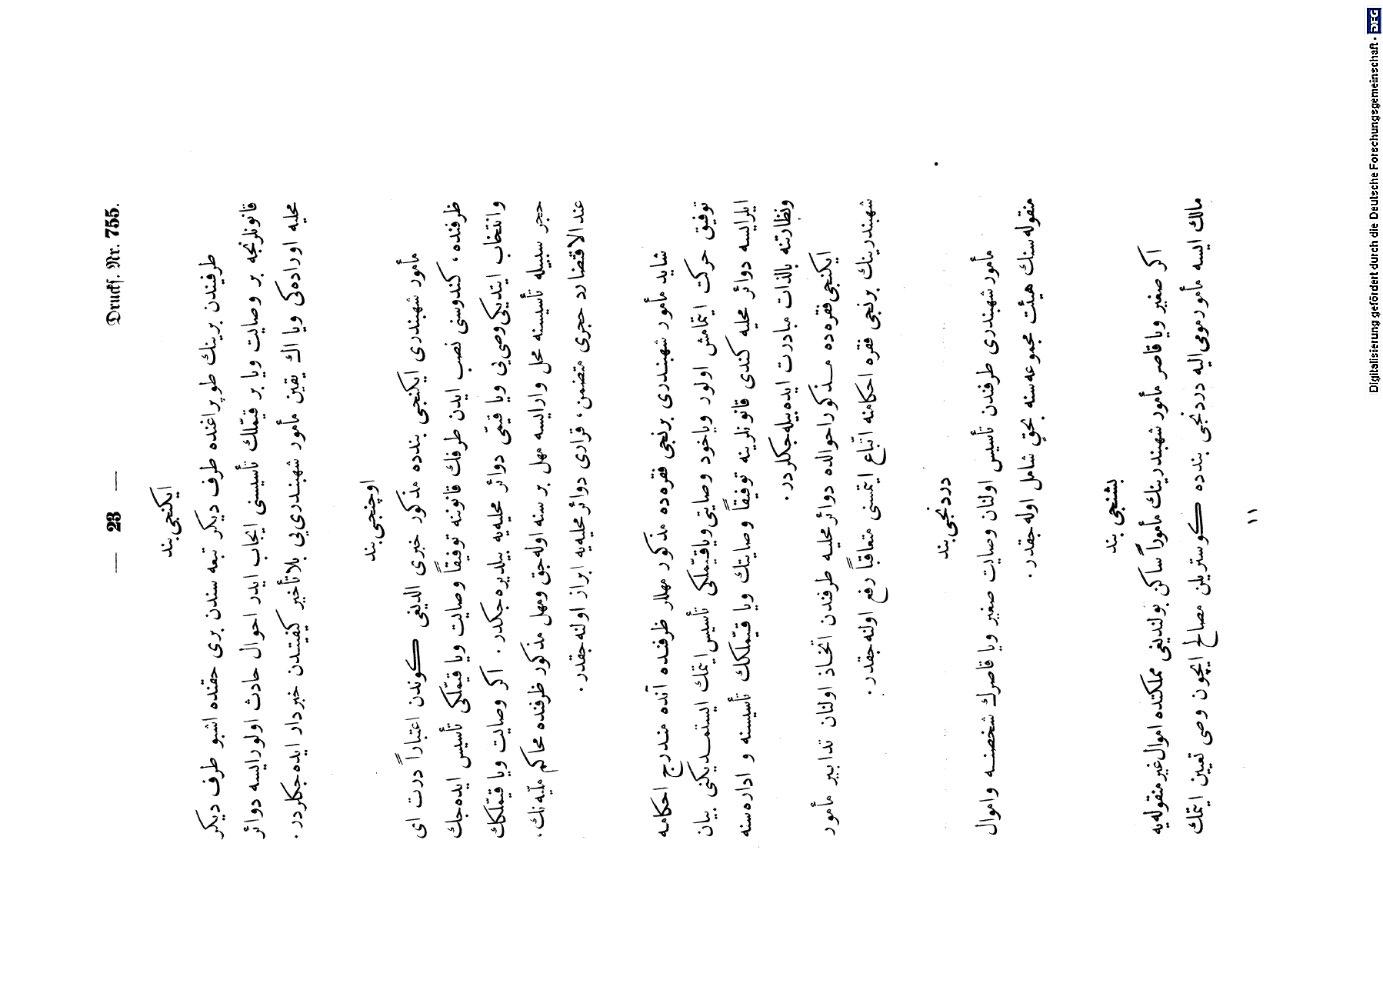 — 23 — Druckf. Nr. 755.
ایکنجی بند
طرفیندن برینك طوپراغنده طرف دیکر تبعه سندن بری حقنده اشبو طرف دیکر
قانونلرنجه بر وصایت ویا بر قیملك تأسیسنی ایجاب ایدر احوال حادث اولورایسه دوائر
محلیه اوراده‌کی ویا اك یقین مأمور شهبندری‌یی بلاتأخیر کیفیتدن خبردار ایده‌جکلردر.
اوچنجی بند
مأمور شهبندری ایکنجی بندده مذکور خبری الدیغی کوندن اعتباراً درت ای
ظرفنده، کندوسنی نصب ایدن طرفك قانوننه توفیقاً وصایت ویا قیملکی تأسیس ایده‌جك
وانتخاب ایتدیکی وصی‌یی ویا قیمی دوائر محلیه‌یه بیلدیره‌جکدر. اکر وصایت ویا قیملکك
حجر سبیله تأسیسنه محل وارایسه مهل بر سنه اوله‌جق ومهل مذکور ظرفنده محاکم ملیه‌نك،
عندالاقتضا رد حجری متضمن، قراری دوائر محلیه‌یه ابراز اولنه‌جقدر.
شاید مأمور شهبندری برنجی فقره‌ده مذکور مهللر ظرفنده آنده مندرج احکامه
توفیق حرکت ایتمامش اولور ویاخود وصایتی ویاقیملکی تأسیس ایتمك ایستمدیکنی بیان
ایلرایسه دوائر محلیه کندی قانونلرینه توفیقاً وصایتك ویا قیملکك تأسیسنه و اداره‌سنه
ونظارتنه بالذات مبادرت ایده‌بیله‌جکلردر.
ایکنجی فقره‌ده مذکور احوالده دوائر محلیه طرفندن اتخاذ اولنان تدابیر مأمور
شهبندرینك برنجی فقره احکامنه اتباع ایتمسنی متعاقباً رفع اولنه‌جقدر.
دردنجی بند
مأمور شهبندری طرفندن تأسیس اولنان وصایت صغیر ویا قاصرك شخصنه واموال
منقوله‌سنك هیئت مجموعه‌سنه بحق شامل اوله‌جقدر.
بشنجی بند
اکر صغیر ویا قاصر مأمور شهبندرینك مأموراً ساکن بولندیغی مملکتده اموال غیر منقوله‌یه
مالك ایسه مأمور مومی‌الیه دردنجی بندده کوستریلن مصالح ایچون وصی تعیین ایتمك
١١
Digitalisierung gefördert durch die Deutsche Forschungsgemeinschaft - DFG